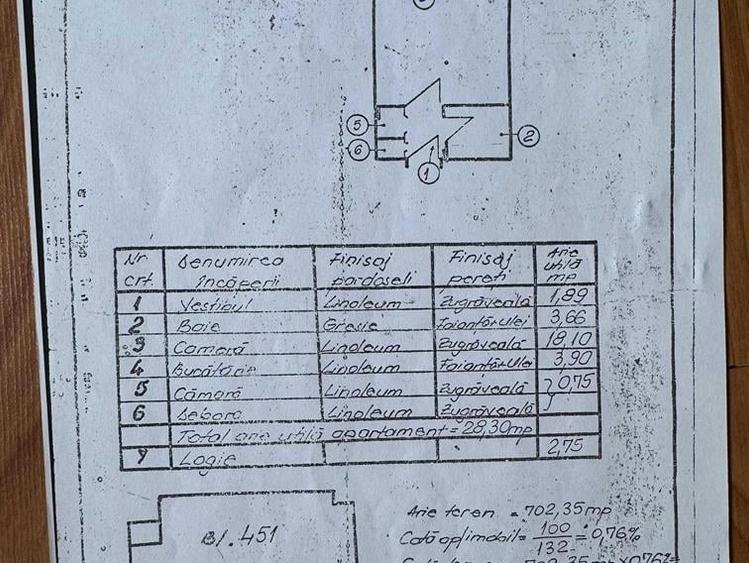 5
6
1
2
Nr. crt. Denumirea încăperii Finisaj pardoseli Finisaj pereți Arie utilă mp
1 Vestibul Linoleum Zugrăveală 1,89
2 Baie Gresie Faianță+Ulei 3,66
3 Cameră Linoleum Zugrăveală 18,10
4 Bucătărie Linoleum Faianță+Ulei 3,90
5 Cămară Linoleum Zugrăveală 0,75
6 Debara Linoleum Zugrăveală
Total arie utilă apartament = 28,30mp
7 Logie 2,75
Bl. 451
Arie teren = 702,35mp
Cotă ap/imobil = 100/132 = 0,76%
702,35mp x 0,76% =